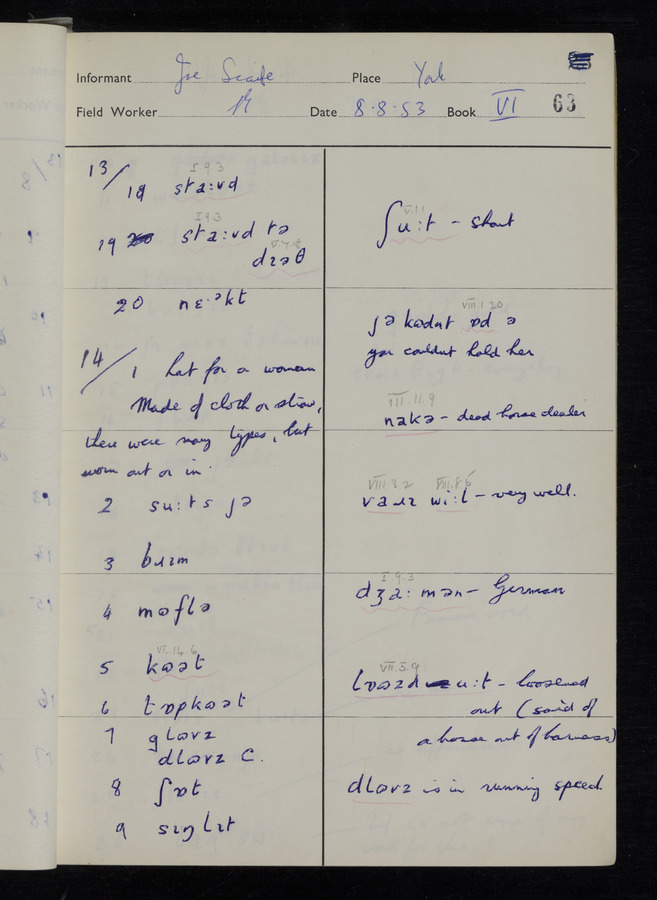 Informant Joe Scaife Place York
Field Worker Date 8.8.53 Book VI 63
13/19 sta:vd I 9 3
19 sta:vd tə I 9 3
dɪəθ V.7.18
20 nɛ·əkt
14/1 hat for a woman
Made of cloth or straw,
there were many types, but
worn out or in.
2 su:ts jə
3 buzm
4 mɒflə
5 kɒət VI.14.6
6 tɒpkɒət
7 glʊvz
dlʊvz c.
8 ʃɒt
9 sɪŋlɪt
ʃu:t - shout V.11
jə kədnt ɒd ə VIII.1.20
you couldnt hold her
nakə - dead horse dealer VIII.11.9
vaɹɪ wi:l - very well. VIII.3.2 VIII.8.6
dʒa:mən - German I 9.3
lʊəzd u:t - loosened VII.5.9
out (said of
a horse out of harness)
dlʊvz is in running speed.